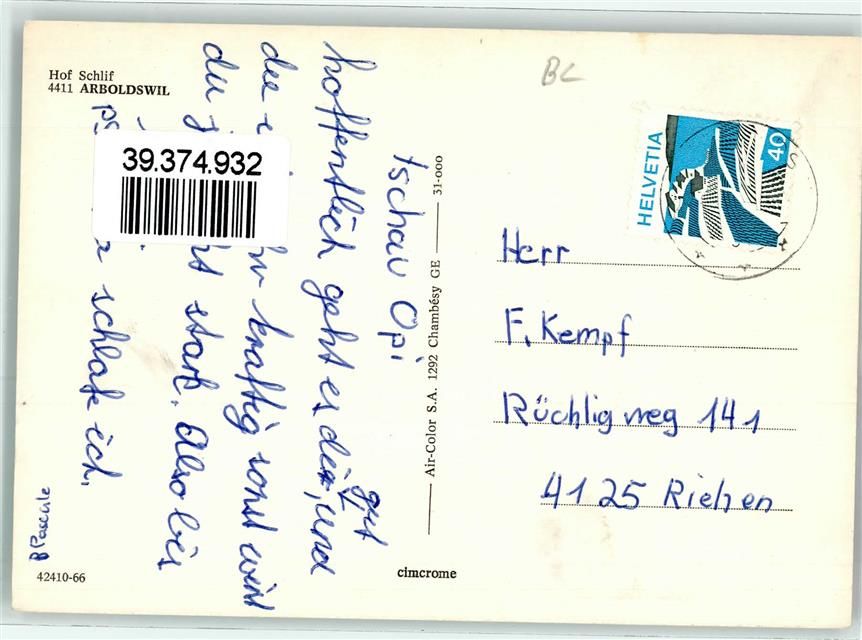 Hof Schlif
4411 ARBOLDSWIL
BC
HELVETIA
40
39.374.932
tschau Opi
hoffentlich geht es dir, gut und
du kräftig sonst wirst
du stark. Also bis
schlafe ich.
B Pascale
Herr
F. Kempf
Rüchligweg 141
4125 Riehen
Air-Color S.A. 1292 Chambésy GE
31-000
42410-66
cimcrome